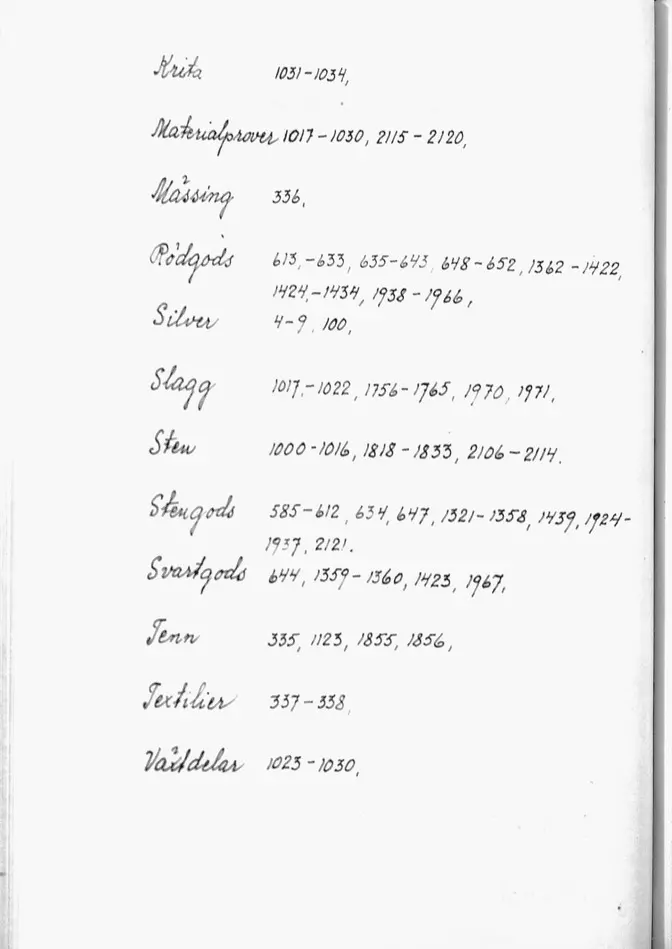 Krita 1031-1034,
Materialprover 1017-1030, 2115-2120,
Mässing 336,
Rödgods 613,-633, 635-643, 648-652, 1362-1422,
1424,-1434, 1938-1966,
Silver 4-9, 100,
Slagg 1017,-1022, 1756-1765, 1970, 1971,
Sten 1000-1016, 1818-1833, 2106-2114.
Stengods 585-612, 634, 647, 1321-1358, 1439, 1924-
1937, 2121.
Svartgods 644, 1359-1360, 1423, 1967,
Tenn 335, 1123, 1855, 1856,
Textilier 337-338,
Växtdelar 1023-1030,